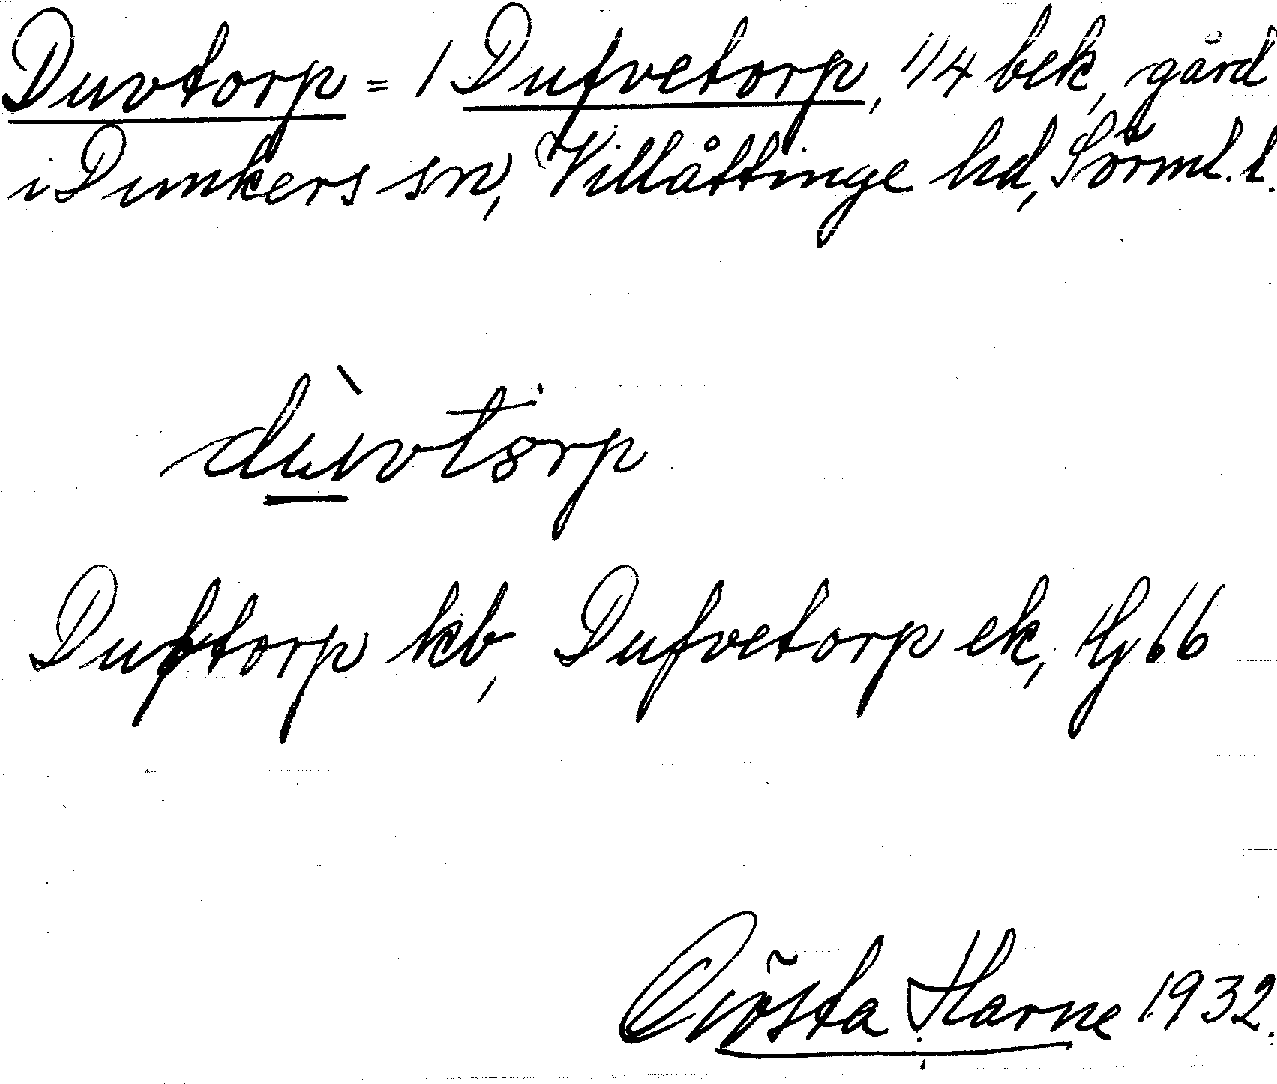 Duvtorp = 1 Dufvetorp, 1/4 bek, gård
i Dunkers sn, Villåttinge hd, Sörml. l.
dùvtȯrp
Duftorp kb, Dufvetorp ek, Hj 66
Gösta Harne 1932.